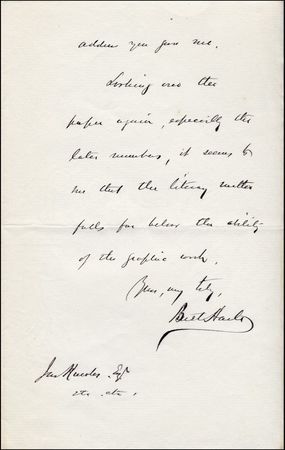 address you gave me.
Looking over the
paper again, especially the
later numbers, it seems to
me that the literary matter
falls far below the ability
of the graphic work.
Yours, very truly,
Bret Harte
Esq
etc. etc.